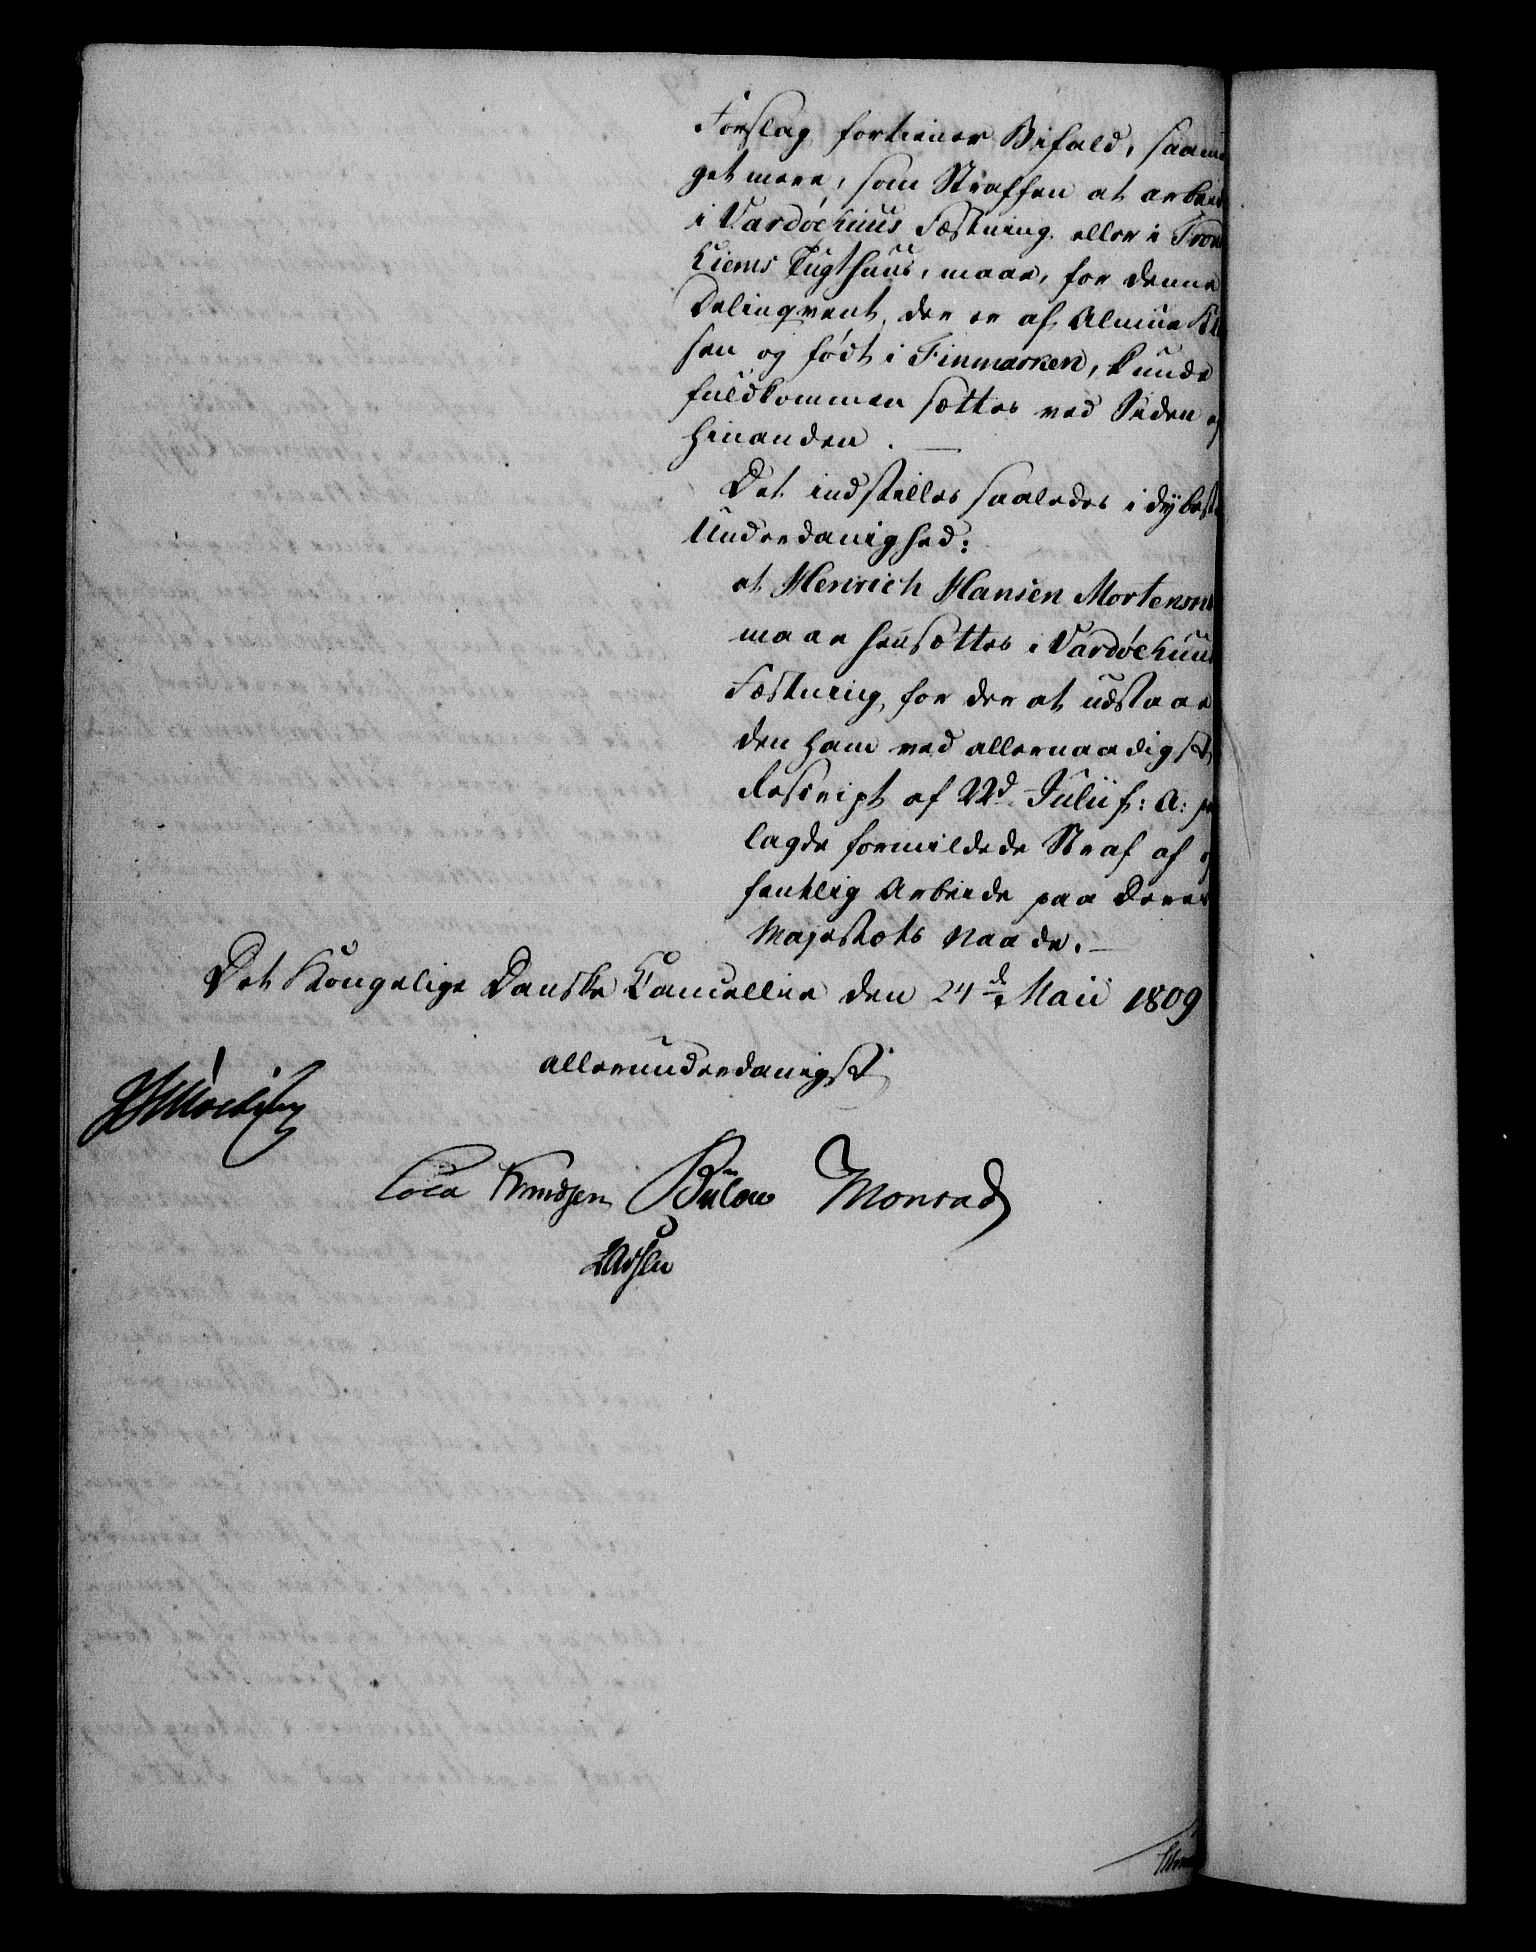 Forslag fortiener Bifald, saam
get mere, som Straffen at arbeid
i Vardøehuus Fæstning eller i Tron
hiems Tugthuus, maae, for denne
Delinqvent, der er af Almue Kla
sen og født i Finmarken, kunde
fuldkommen sættes ved Siden af
hinanden. —
Det indstilles saaledes i dybeste
Underdanighed:
at Henrich Hansen Mortensen
maae hensættes i Vardøehuus
Fæstning, for der at udstaae
den ham ved allernaadigst
Rescript af 22d Julii f: A: paa
lagde formildede Straf af of
fentlig Arbeide paa Deres
Majestæts Naade. —
Det Kongelige Danske Cancellie den 24d Maii 1809
allerunderdanigst
Cold Knudsen Bülow Monrad